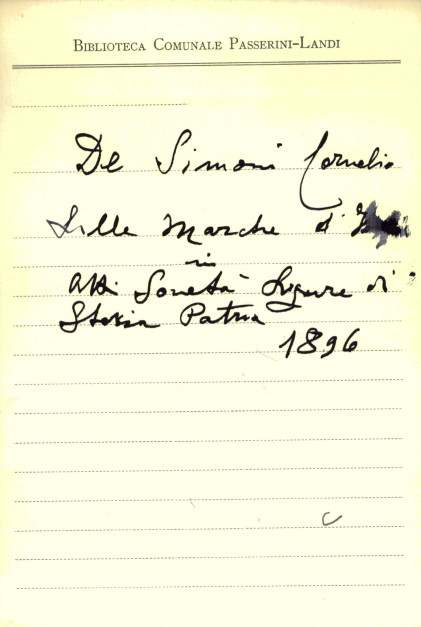 BIBLIOTECA COMUNALE PASSERINI-LANDI
De Simoni Cornelio
Sulle Marche d'
in
Atti Società Ligure di
Storia Patria
1896
C